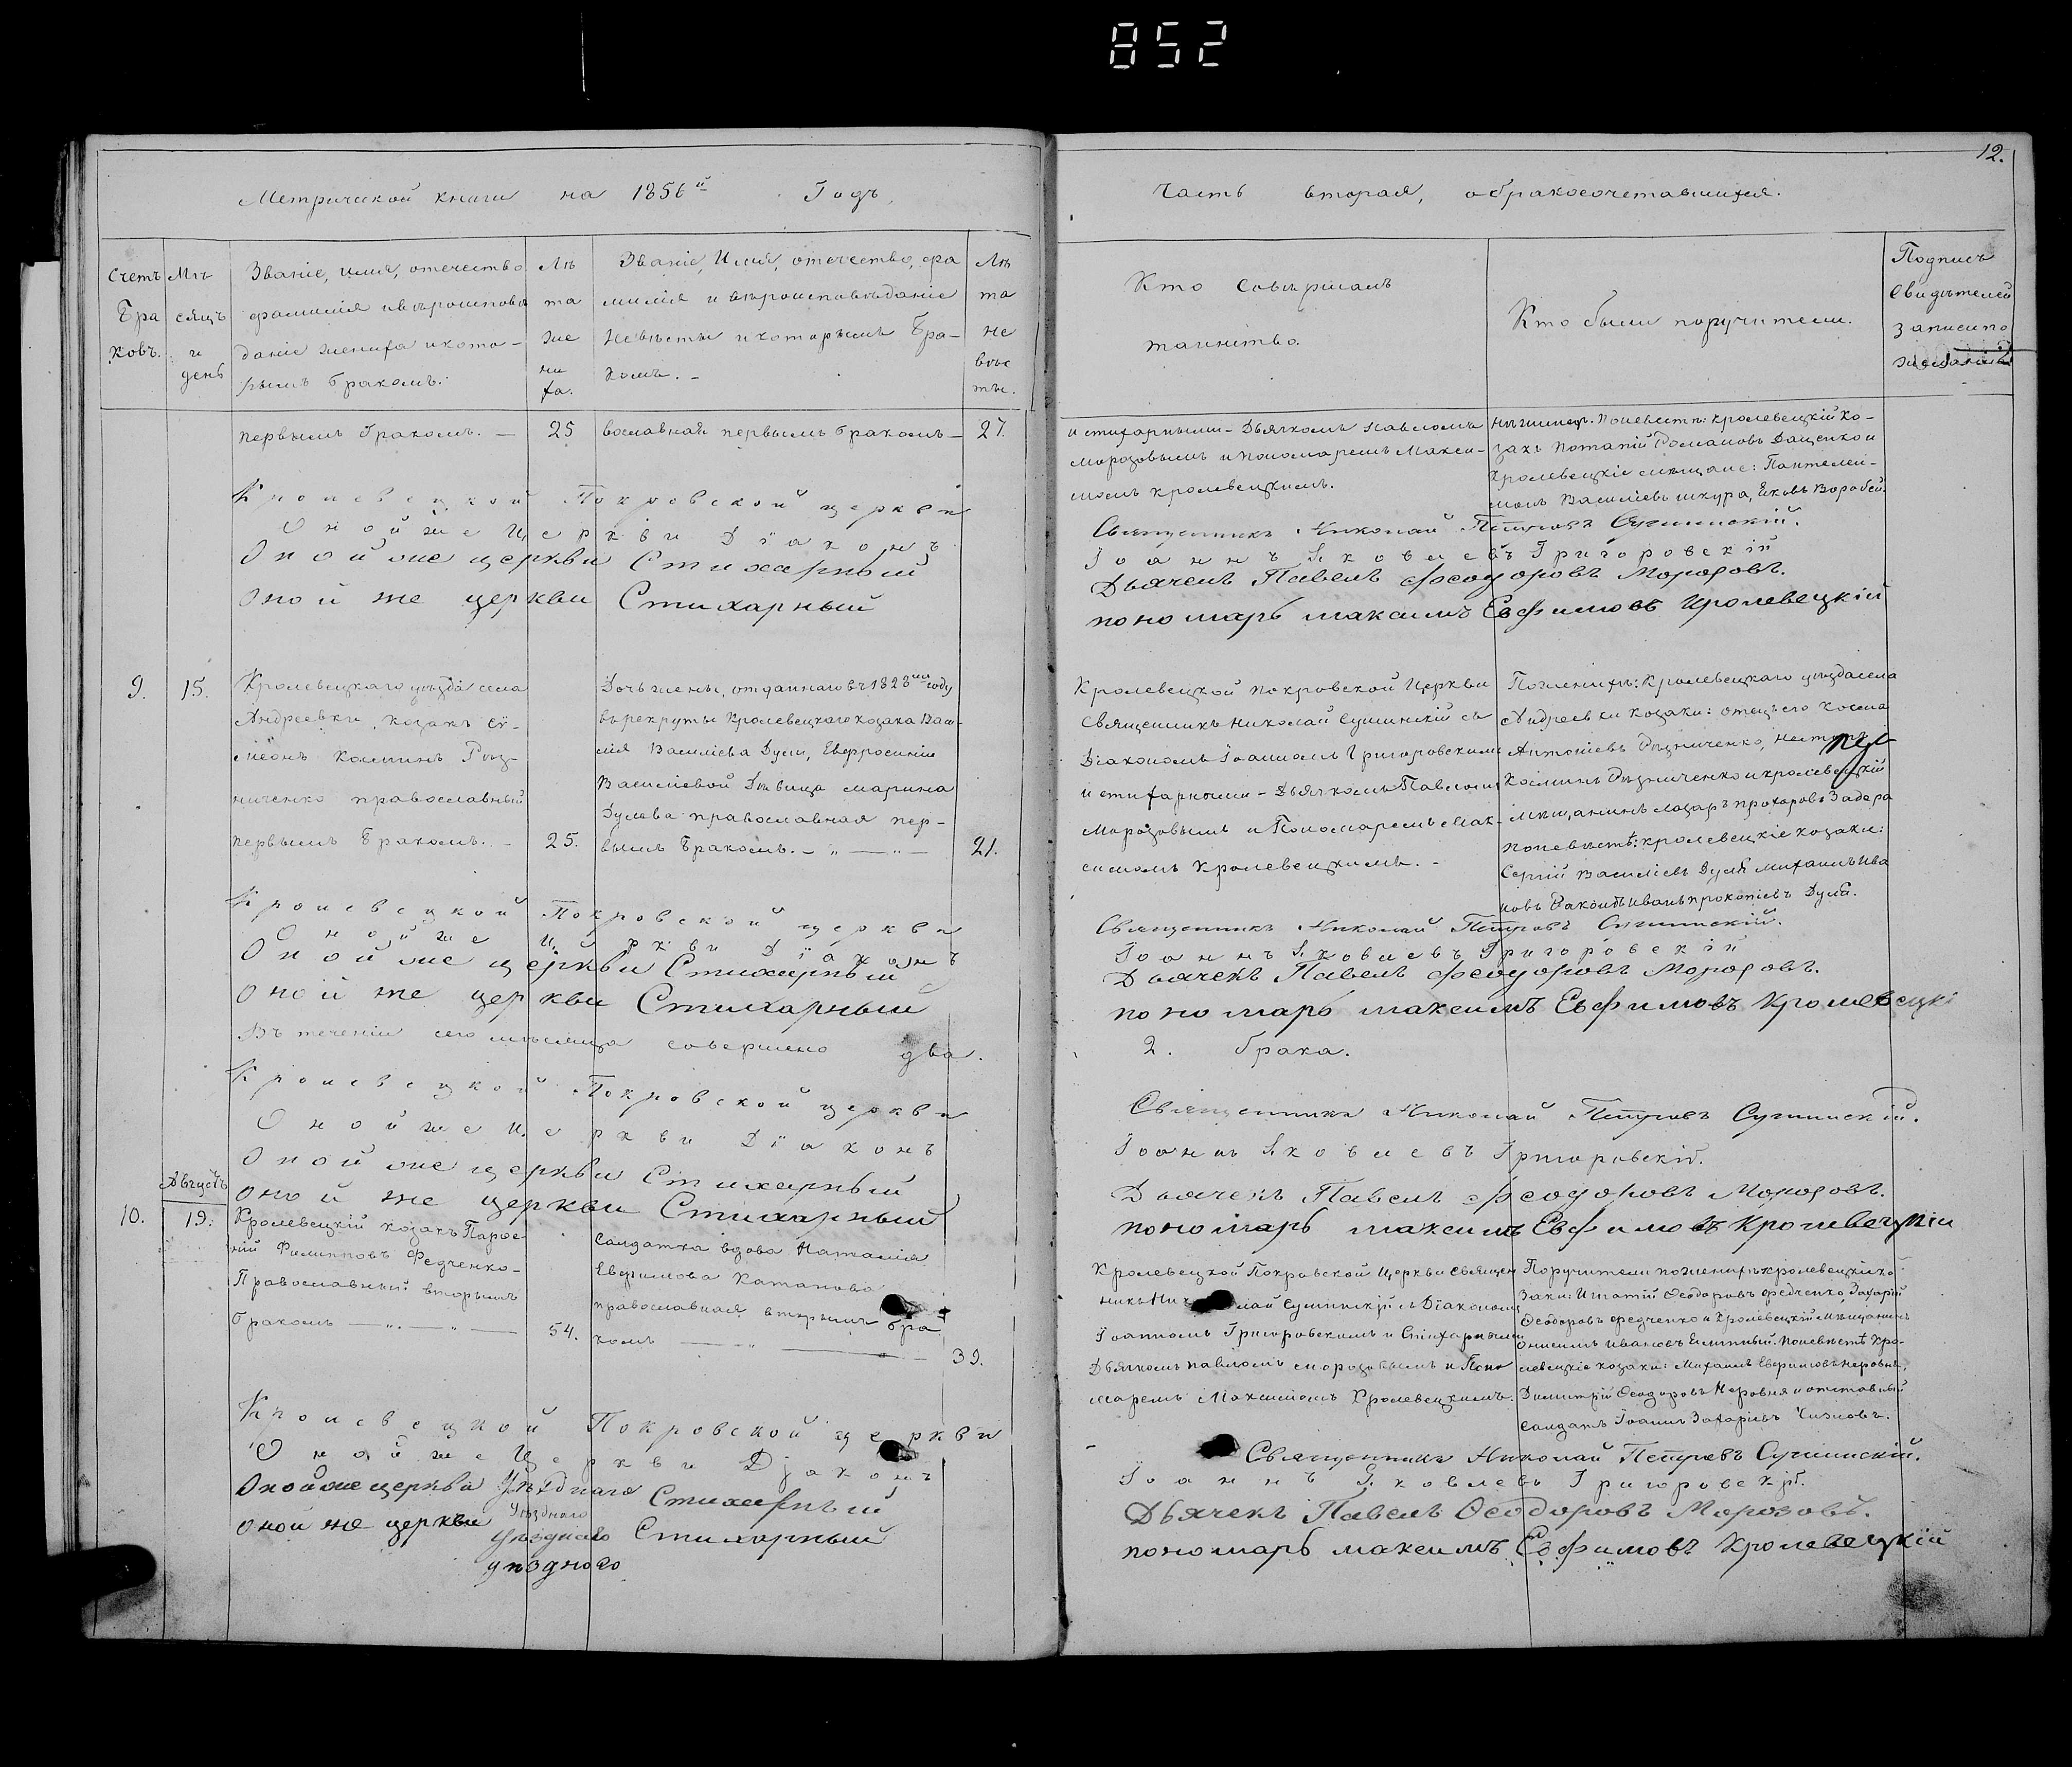 852
12.
Метрической книги на 1856й Годъ,
Часть вторая, о бракосочетавшихся.
Счетъ
Бра
ковъ.
Мѣ
сяцъ
и
день
Званіе, имя, отечество
фамилія и вѣроисповѣ
даніе жениха и кото-
рымъ бракомъ.
Лѣ
та
же
ни
ха.
Званіе, Имя, отечество, фа
милія и вѣроисповѣданіе
невѣсты и которымъ Бра-
комъ. -
Лѣ
та
не
вѣс
ты.
Кто совершалъ
таинство.
Кто были поручители.
Подпись
свидѣтелей
записи по
желанію
первымъ бракомъ. —
25
вославная первымъ бракомъ —
27.
и стихарными - Дьячкомъ Павломъ
Морозовымъ и пономаремъ Макси-
момъ Кролевецкимъ.
По невѣстѣ: Кролевецкій ко-
закъ Потапій Романовъ Дащенко и
Кролевецкіе мѣщане: Пантелей-
монъ Василіевъ Шкура, Яковъ Воробей.
Кролевецкой Покровской церкви
Оной же Церкви Діаконъ
Оной же церкви Стихарный
Оной же церкви Стихарный
Священникъ Николай Петровъ Сушинскій.
Іоаннъ Яковлевъ Григоровскій
Дьячекъ Павелъ Феодоровъ Морозовъ.
пономарь максимъ Евфимовъ Кролевецкій
9.
15.
Кролевецкаго уѣзда села
Андреевки, козакъ Сѵ-
меонъ Косминъ Рѣз-
ниченко православный
первымъ Бракомъ. -
25.
Дочь жены, отданнаго въ 1828мъ году
въ рекруты Кролевецкаго козака Васи-
лія Василіева Дули, Евфросиніи
Василіевой Дѣвица Марина
Дулева православная пер-
вымъ Бракомъ. - „ — „ —
21.
Кролевецкой Покровской Церкви
Священникъ Николай Сушинскій съ
Діакономъ Іоанномъ Григоровскимъ
и стихарными - Дьячкомъ Павломъ
Морозовымъ и Пономаремъ Мак-
симомъ Кролевецкимъ. -
По женихѣ: Кролевецкаго уѣзда села
Андреевки козаки: отецъ его Косма
Антоніевъ Рѣзниченко,
Косминъ Рѣзниченко и Кролевецкій
мѣщанинъ Лазарь Прохоровъ Задера
по невѣстѣ: Кролевецкіе козаки:
Сергій Василіевъ Дуля Михаилъ Ива
новъ Иванъ Прокопіевъ Дуля.
Кролевецкой Покровской церкви
Оной же Церкви Діаконъ
Оной же церкви Стихарный
Оной же церкви Стихарный
Священникъ Николай Петровъ Сушинскій.
Іоаннъ Яковлевъ Григоровскій
Дьячекъ Павелъ Феодоровъ Морозовъ.
пономарь максимъ Евфимовъ Кролевецкі
Въ теченіи сего мѣсяца совершено два.
2. брака.
Кролевецкой Покровской церкви
Оной же Церкви Діаконъ
Оной же церкви Стихарный
Оной же церкви Стихарный
Священникъ Николай Петровъ Сушинскій.
Іоаннъ Яковлевъ Григоровскій.
Дьячекъ Павелъ Феодоровъ Морозовъ.
пономарь максимъ Евфимовъ Кролевецкій
Августъ
10.
19.
Кролевецкій козакъ Парѳе-
ній Филипповъ Федченко-
Православный вторымъ
бракомъ — „ — „ —
54.
Солдатка вдова Наталія
Евфимова Катанова
православная вторымъ бра
комъ — „ —
39.
Кролевецкой Покровской Церкви Священ
никъ Николай Сушинскій съ Діакономъ
Іоанномъ Григоровскимъ и Стихарными
Дьячкомъ Павломъ Морозовымъ и Поно
маремъ Максимомъ Кролевецкимъ.
Поручители по женихѣ Кролевецкіе ко
заки: Игнатій Ѳеодоровъ Федченко, Захарій
Ѳеодоровъ Федченко и Кролевецкій мѣщанинъ
Онисимъ Ивановъ. По невѣстѣ Кро-
левецкіе козаки: Михаилъ Евфимовъ Неровня,
Димитрій Ѳеодоровъ Неровня и отставный
солдатъ Іоаннъ Захаріевъ Чижовъ.
Кролевецкой Покровской церкви
Оной же Церкви Діаконъ
Оной же церкви Уѣзднаго Стихарный
Уѣзднаго
Оной же церкви Уѣзднаго Стихарный
уѣзднаго
Священникъ Николай Петровъ Сушинскій.
Іоаннъ Яковлевъ Григоровскій.
Дьячекъ Павелъ Ѳеодоровъ Морозовъ.
пономарь максимъ Евфимовъ Кролевецкій